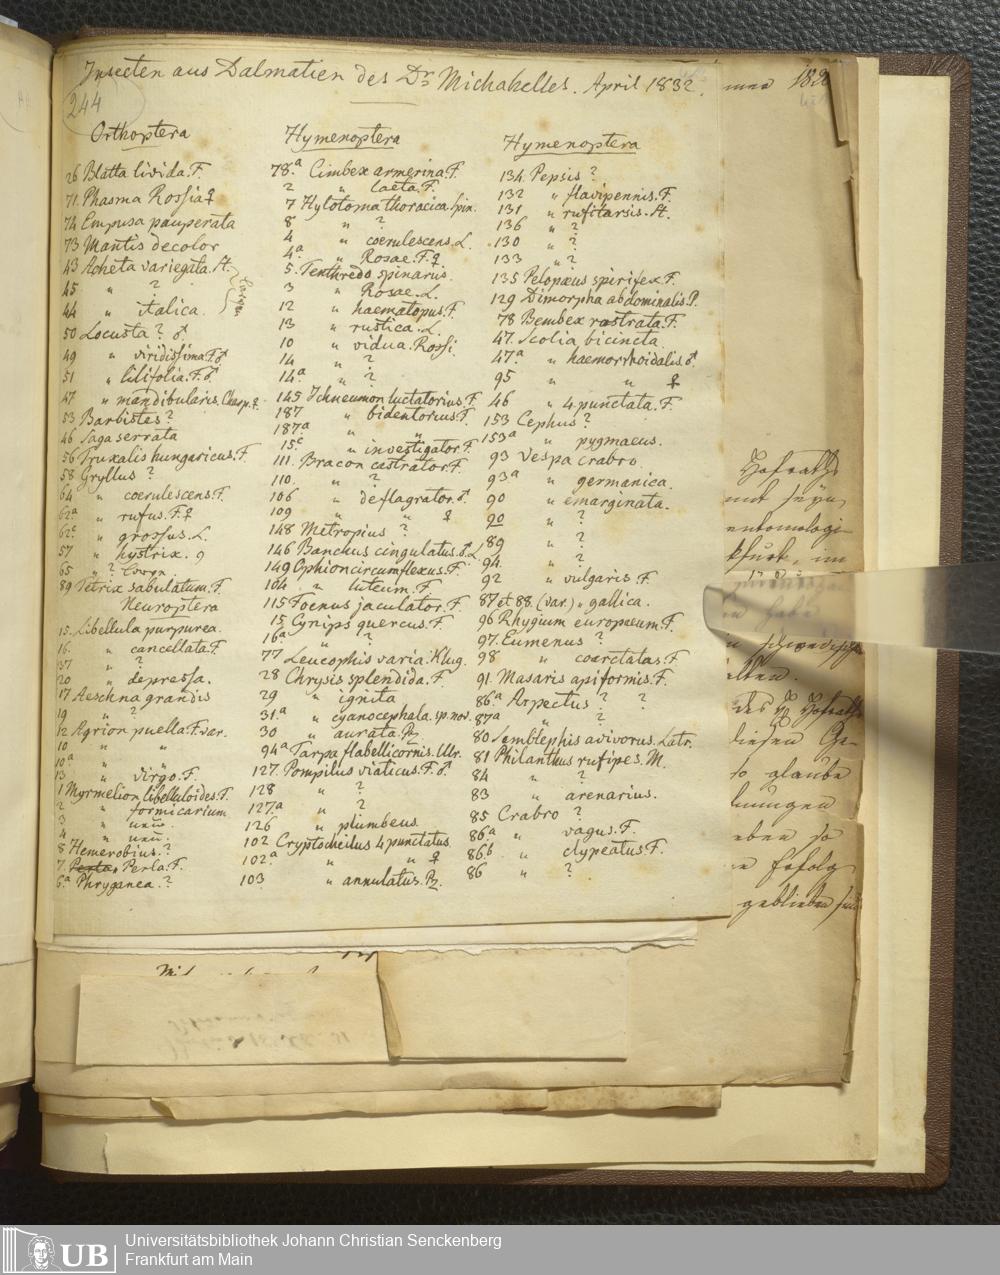 Insecten aus Dalmatien des Dr Michahelles. April 1832.
244
Orthoptera
26 Blatta livida. F.
71. Phasma Rossia ♀
74 Empusa pauperata
73 Mantis decolor
43 Acheta variegata. St.
45 " ?
44 " italica.
Larven
50 Locusta ? ♂
49 " viridissima. F. ♂
51 " lilifolia. F. ♂
47 " mandibularis. Charp. ♀
53 Barbistes ?
46 Saga serrata
56 Truxalis hungaricus. F.
58 Gryllus ?
64 " coerulescens. F.
62a " rufus. F. ♀
62c " grossus. L.
57 " hystrix. 9
65 " ?
89 Tetrix sabulatum. F.
Neuroptera
15. Libellula purpurea.
16. " cancellata. F
37 " ?
20 " depressa.
17 Aeschna grandis
19 " ?
12 Agrion puella. F. var.
10 " "
10a " "
13 " virgo. F.
1 Myrmelion libelluloides. F.
2 " formicarium
3 "
4 "
8 Hemerobius. ?
7. Perla. F.
6a Phryganea. ?
Hymenoptera
78.a Cimbex armerina. F.
2 " laeta. F.
7 Hylotoma thoracica. Spin.
8 " ?
4 " coerulescens. L.
4.a " Rosae. F. ♀
5. Tenthredo spinarus.
3 " Rosae. L.
12 " haematopus. F.
13 " rustica. L.
10 " vidua. Rossi.
14 " ?
14.a " ?
145 Ichneumon luctatorius. F.
187 " bidentorius. F.
187a " "
15.c " investigator. F.
111. Bracon castrator. F.
110. " ?
106 " deflagrator. ♂
109 " " ♀
148 Metropius ?
146 Banchus cingulatus. ♂. L
149 Ophion circumflexus. F.
104 " luteum. F.
115 Foenus jaculator. F.
15 Cynips quercus. F.
16a " ?
77 Leucophis varia. Klug.
28 Chrysis splendida. F.
29 " ignita
31.a " cyanocephala. sp. nov.
30 " aurata. Pz.
94a Tarpa flabellicornis. Ulr.
127. Pompilus viaticus. F. ♂
128 " ?
127.a " ?
126 " plumbeus
102 Cryptocheilus 4 punctatus.
102.a " " ♀
103 " annulatus. Pz.
Hymenoptera
134. Pepsis ?
132 " flavipennis. F.
131 " rufitarsis. St.
136 " ?
130 " ?
133 " ?
135 Pelopaeus spirifex. F.
129 Dimorpha abdominalis. P.
78 Bembex rostrata. F.
47. Scolia bicincta.
47.a " haemorrhoidalis. ♂
95 " " ♀
46 " 4. punctata. F.
153 Cephus ?
153a " pygmaeus.
93 Vespa crabro.
93a " germanica.
90 " emarginata.
90 " ?
89 " ?
94. " ?
92 " vulgaris. F.
87 et 88. (var.) " gallica.
96 Rhygium europaeum. F.
97. Eumenus ?
98 " coarctatas. F
91. Masaris apiformis. F.
86.a Arpectus ? ?
87a " ?
80 Semblephis avivorus. Latr.
81 Philanthus rufipes. M.
84 " ?
83 " arenarius.
85 Crabro ?
86a " vagus. F.
86b " clypeatus. F.
86 " ?
Hofraths
entomologi-
im
haben
alten.
des H. Hofraths
diesen Ge-
so glaube
eben so
Erfolg
geblieben
UB
Universitätsbibliothek Johann Christian Senckenberg
Frankfurt am Main